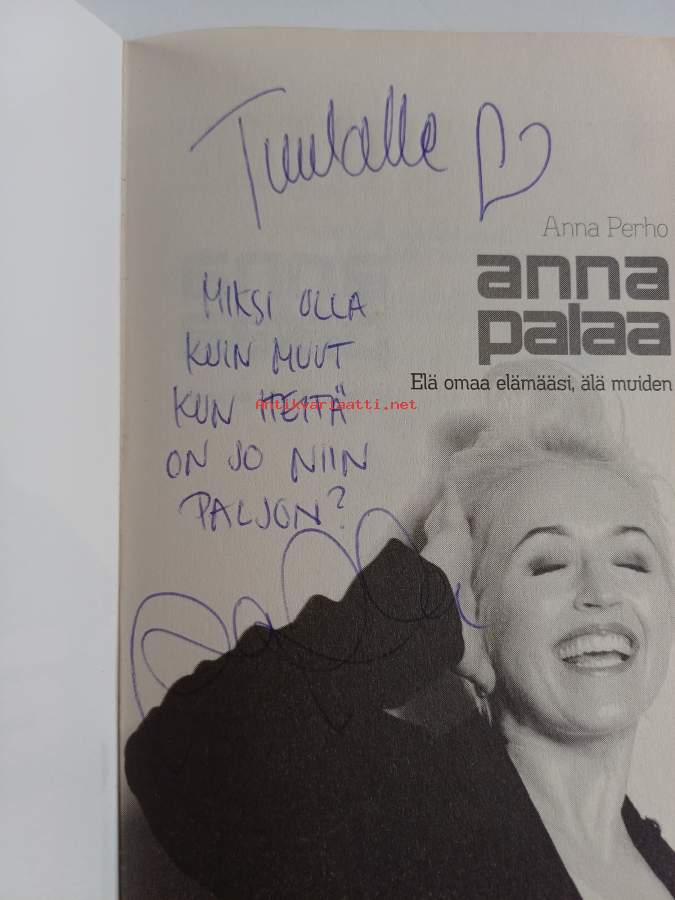 Tuulalle
Anna Perho
anna
palaa
Elä omaa elämääsi, älä muiden
MIKSI OLLA
KUIN MUUT
KUN HEITÄ
Antikvariaatti.net
ON JO NIIN
PALJON?